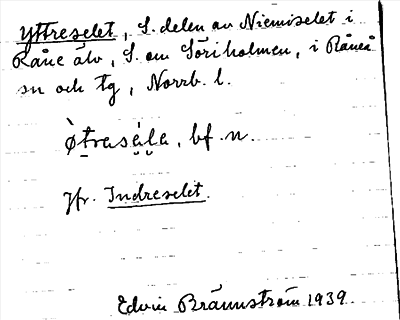 Yttreselet, S. delen av Niemiselet i
Råne älv, S. om Söriholmen, i Råneå
sn och tg, Norrb. l.
bf. n.
Jfr. Indreselet.
Edvin Brännström 1939.